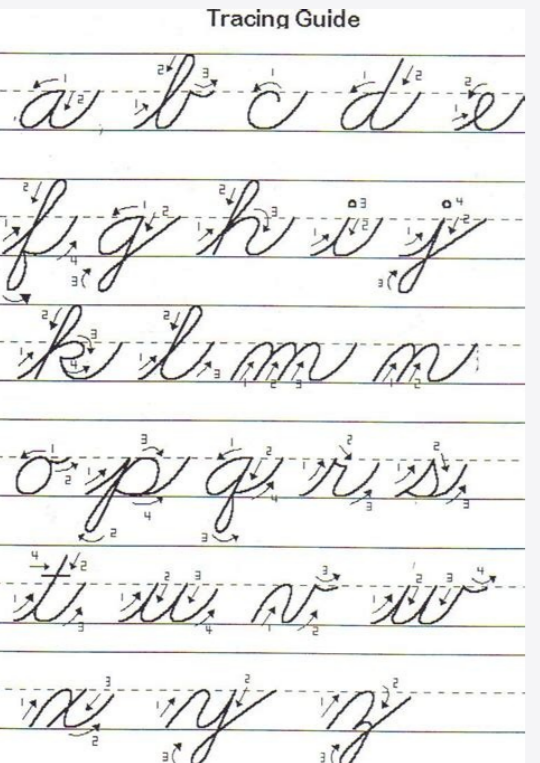 Tracing Guide
a b c d e
f g h i j
k l m n
o p q r s
t u v w
x y z